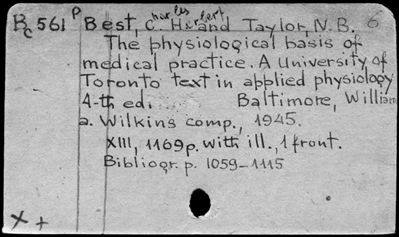 Bc 561 P Best, Charles Herbert and Taylor, N. B. 6
The physiological basis of
medical practice. A University of
Toronto text in applied physiology
4-th ed. Baltimore, William
a. Wilkins comp., 1945.
XIII, 1169p. with ill., 1 front.
Bibliogr. p. 1059-1115
x +